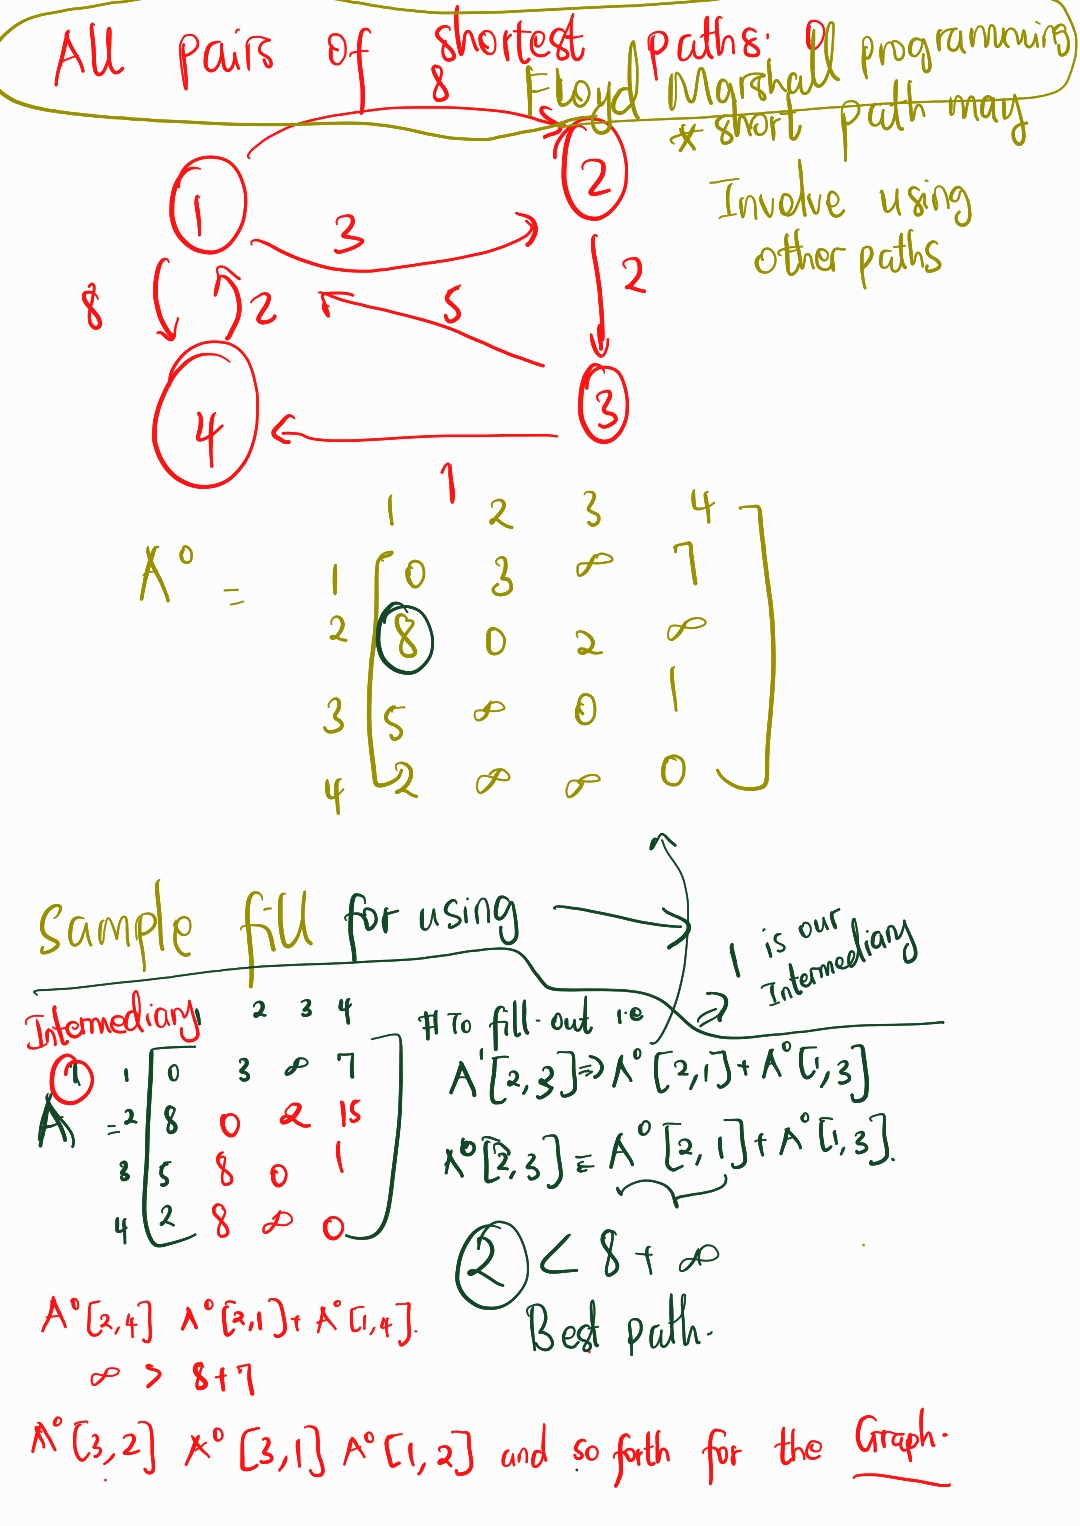 All pairs of shortest paths.
Floyd Marshall programming
* short path may
Involve using
other paths
8
1
2
3
8
2
5
2
4
3
1
1 2 3 4
A⁰ =
1 0 3 ∞ 7
2 8 0 2 ∞
3 5 ∞ 0 1
4 2 ∞ ∞ 0
Sample fill for using
1 is our
Intermediary
Intermediary
1 2 3 4
A¹ =
1 0 3 ∞ 7
2 8 0 2 15
3 5 8 0 1
4 2 8 ∞ 0
# To fill-out i.e
A¹[2,3] => A⁰[2,1] + A⁰[1,3]
A⁰[2,3] = A⁰[2,1] + A⁰[1,3].
2 < 8 + ∞
Best path.
A⁰[2,4] A⁰[2,1] + A⁰[1,4].
∞ > 8+7
A⁰[3,2] A⁰[3,1] A⁰[1,2] and so forth for the Graph.